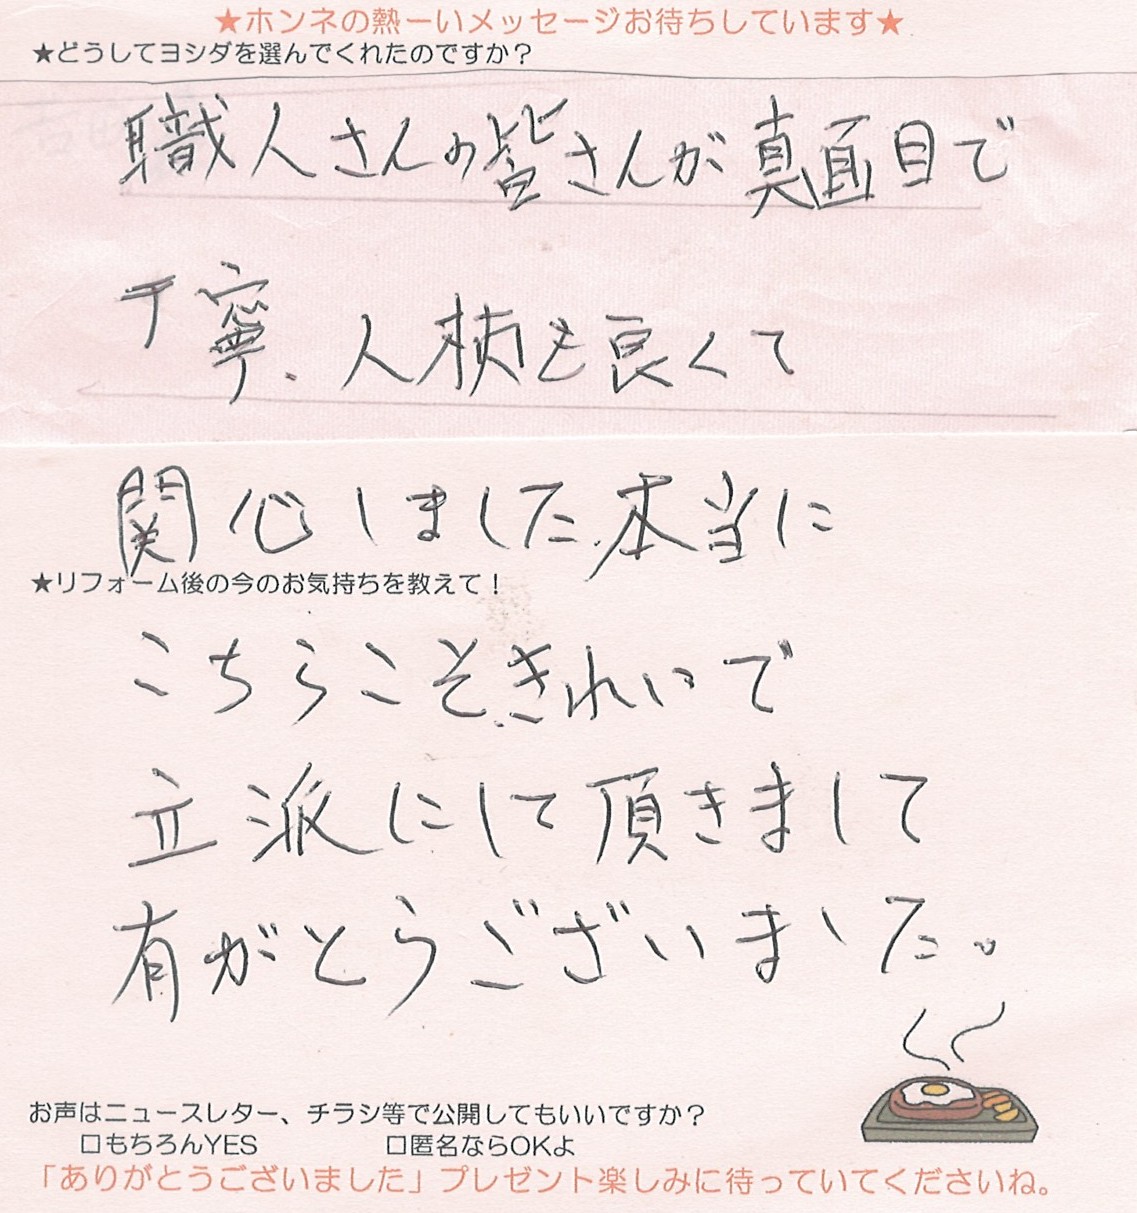 ★ホンネの熱ーいメッセージお待ちしています★
★どうしてヨシダを選んでくれたのですか？
職人さんの皆さんが真面目で
丁寧、人柄も良くて
関心しました、本当に
★リフォーム後の今のお気持ちを教えて！
こちらこそきれいで
立派にして頂きまして
有がとうございました。
お声はニュースレター、チラシ等で公開してもいいですか？
□もちろんYES □匿名ならOKよ
「ありがとうございました」プレゼント楽しみに待っていてくださいね。